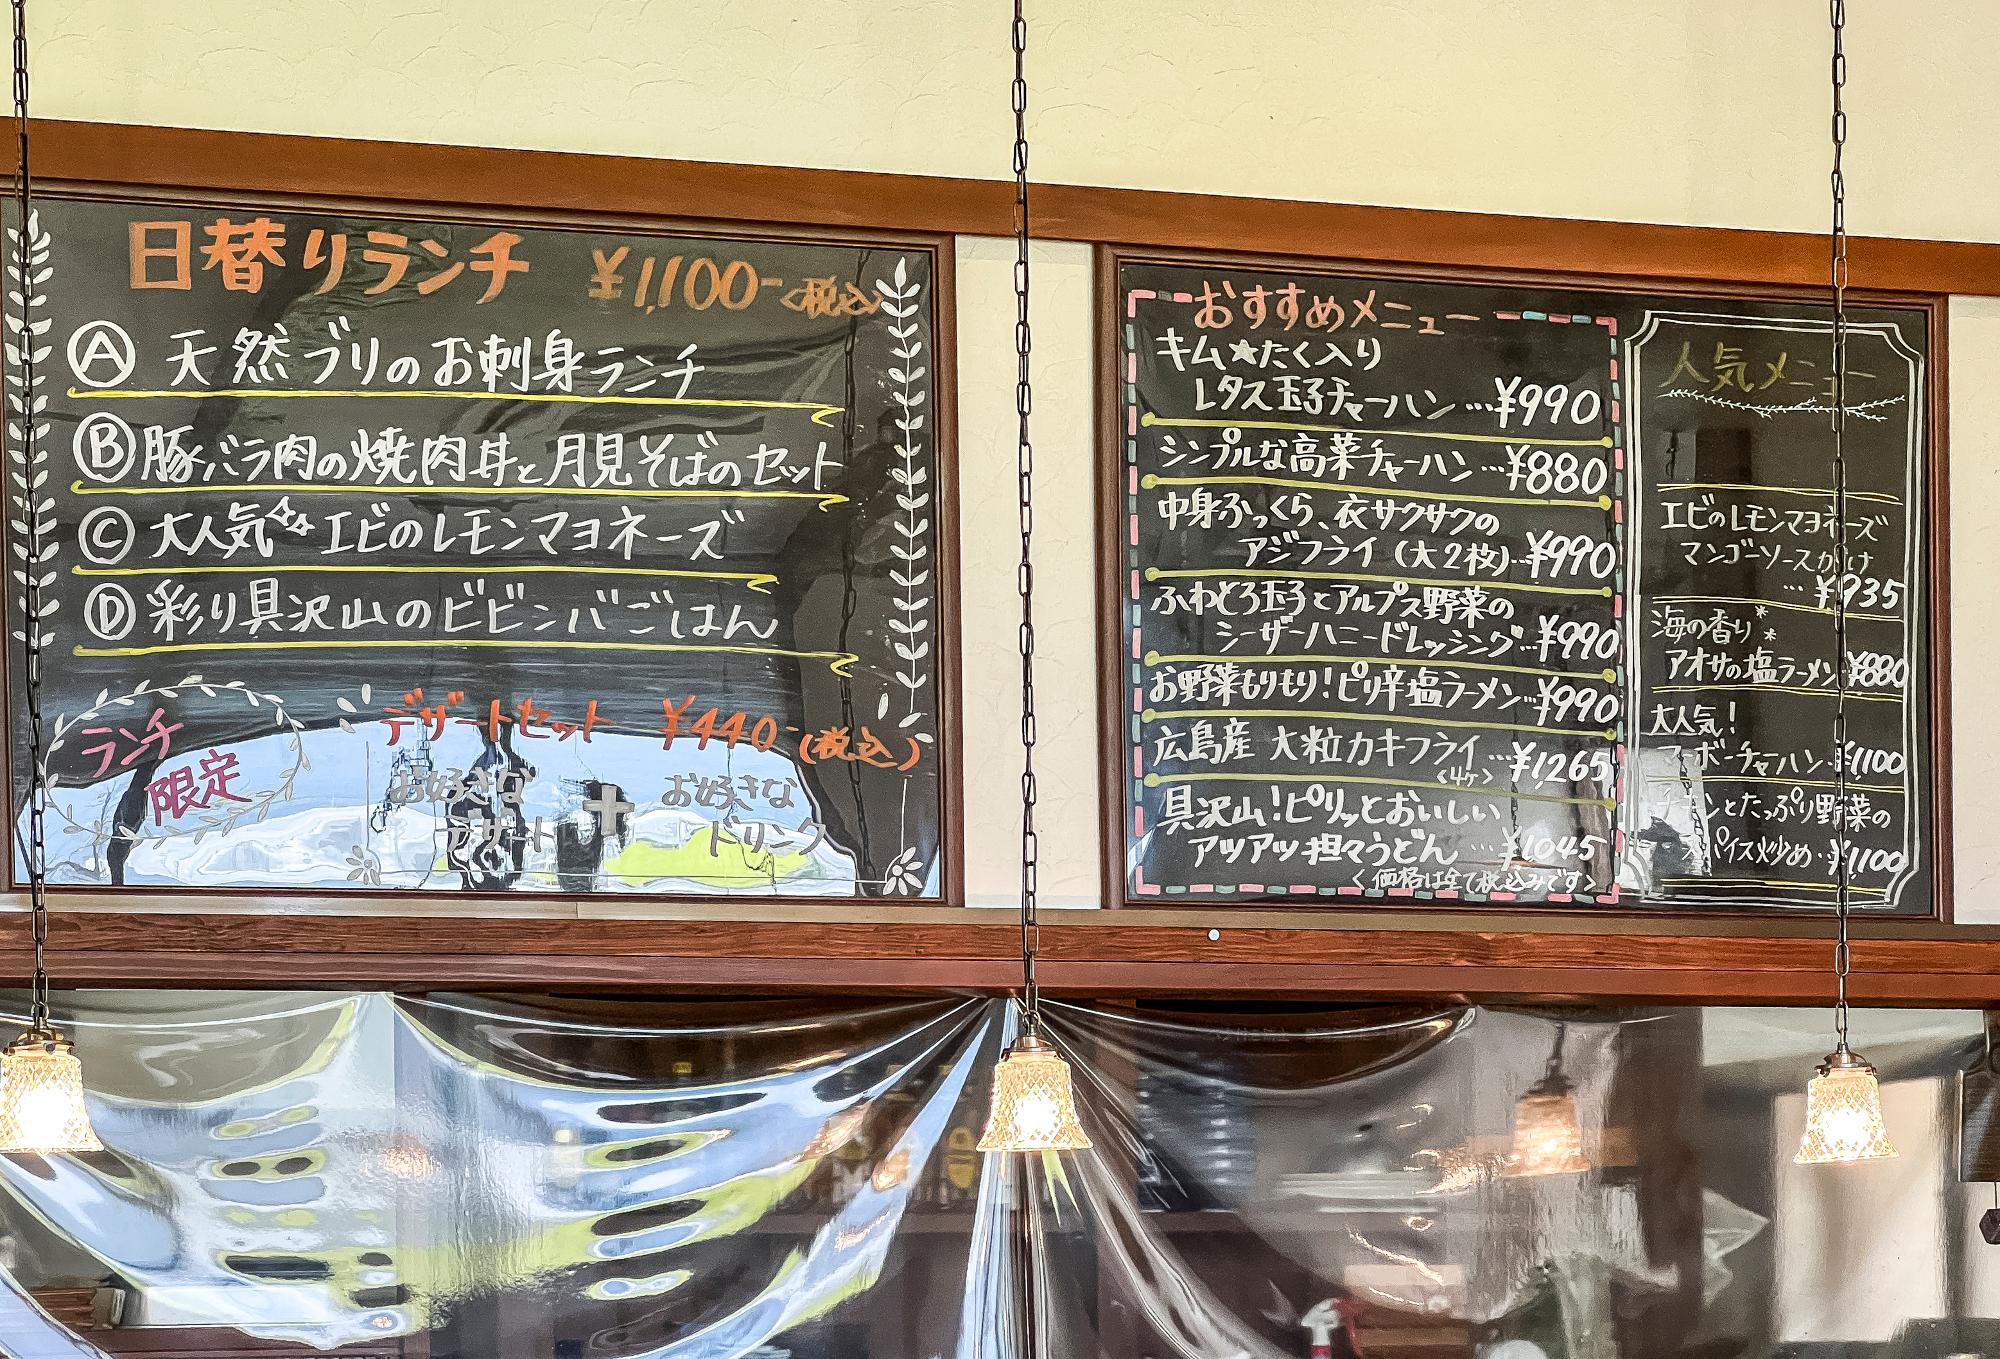 日替りランチ ¥1,100-<税込>
Ⓐ 天然ブリのお刺身ランチ
Ⓑ 豚バラ肉の焼肉丼と月見そばのセット
Ⓒ 大人気 エビのレモンマヨネーズ
Ⓓ 彩り具沢山のビビンバごはん
ランチ
限定
デザートセット ¥440-(税込)
お好きな
デザート
+
お好きな
ドリンク
おすすめメニュー
キム★たく入り
レタス玉子チャーハン…¥990
シンプルな高菜チャーハン…¥880
中身ふっくら、衣サクサクの
アジフライ(大2枚)…¥990
ふわとろ玉子とアルプス野菜の
シーザーハニードレッシング…¥990
お野菜もりもり!ピリ辛塩ラーメン…¥990
広島産 大粒カキフライ…¥1,265
<4ケ>
具沢山!ピリッとおいしい
アツアツ担々うどん…¥1045
<価格は全て税込みです>
人気メニュー
エビのレモンマヨネーズ
マンゴーソースがけ
…¥935
海の香り
アオサの塩ラーメン ¥880
大人気!
マーボーチャーハン ¥1,100
チキンとたっぷり野菜の
スパイス炒め ¥1,100